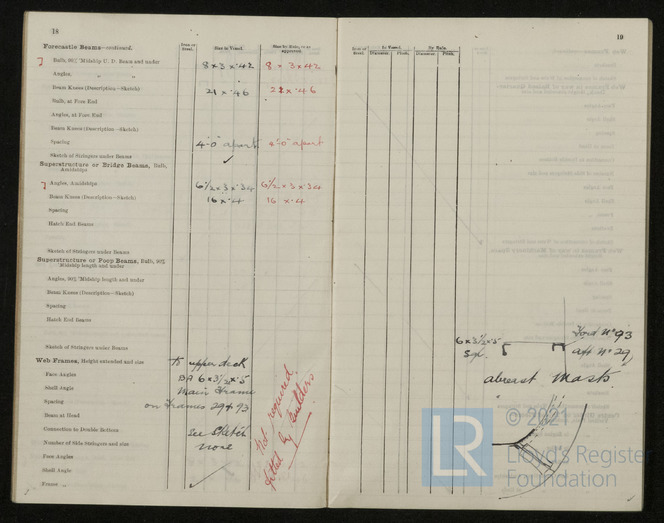 18
Forecastle Beams—continued.
Size in Vessel.
Size by Rule, or as approved.
Bulb, 60% 'Midship U. D. Beams and under
8 x 3 x .42
8 x 3 x .42
Angles, " "
Beam Knees (Description—Sketch)
21 x .46
21 x .46
Bulb, at Fore End
Angles, at Fore End
Beam Knees (Description—Sketch)
Spacing
4'-0" apart
4'-0" apart
Sketch of Stringers under Beams
Superstructure or Bridge Beams, Bulb, Amidships
Angles, Amidships
6½ x 3 x .34
6½ x 3 x .34
Beam Knees (Description—Sketch)
16 x .4
16 x .4
Spacing
Hatch End Beams
Sketch of Stringers under Beams
Superstructure or Poop Beams, Bulb, 90% 'Midship length and under
Angles, 90% 'Midship length and under
Beam Knees (Description—Sketch)
Spacing
Hatch End Beams
Sketch of Stringers under Beams
Web Frames, Height extended and size
to upper deck
Face Angles
BA 6 x 3½ x .5
Shell Angle
Main Frame
Spacing
on Frames 29 & 93
Beams at Head
Connection to Double Bottom
see Sketch
Number of Side Stringers and size
none
Face Angles
Shell Angle
Frame "
Not required.
fitted by builders
19
In Vessel.
By Rule.
Diameter.
Pitch.
Diameter.
Pitch.
6 x 3½ x .5
Ford No 93
aft No 29
abreast masts
© 2021
LR
Lloyd's Register
Foundation